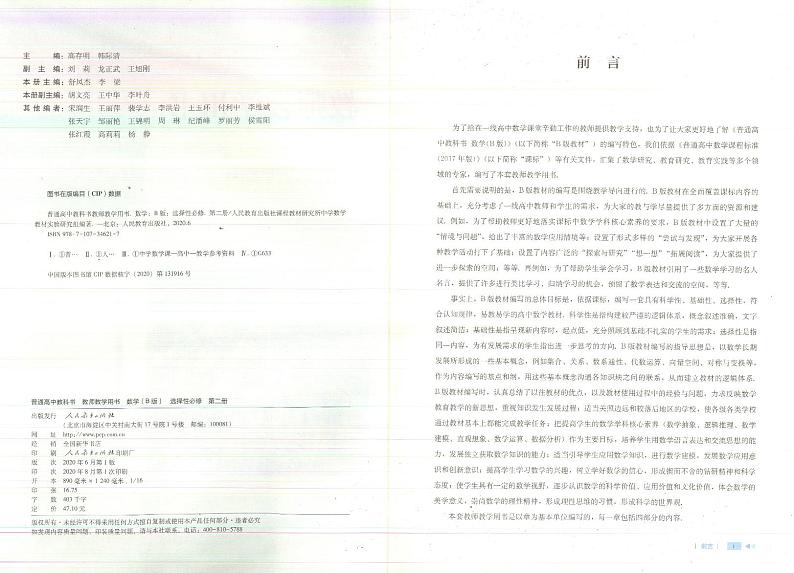 主　　编：高存明　韩际清
副 主 编：刘　莉　龙正武　王旭刚
本册主编：舒凤杰　李　梁
本册副主编：胡文亮　王中华　李叶舟
其他编者：宋润生　王丽萍　裴学志　李洪岩　王玉环　付利中　李维斌
张天宇　邹丽艳　王锦明　周　琳　纪洒峰　罗丽芳　侯雪阳
张红霞　高莉莉　杨　静
图书在版编目（CIP）数据
普通高中教科书教师教学用书. 数学：B版：选择性必修. 第二册/人民教育出版社课程教材研究所中学数学
教材实验研究组编著. —北京：人民教育出版社，2020.6
ISBN 978-7-107-34621-7
Ⅰ. ①普… Ⅱ. ①人… Ⅲ. ①中学数学课—高中—教学参考资料 Ⅳ. ①G633
中国版本图书馆CIP数据核字（2020）第131916号
普通高中教科书　教师教学用书　数学（B版）　选择性必修　第二册
出版发行　人民教育出版社
（北京市海淀区中关村南大街17号院1号楼　邮编：100081）
网　　址　http://www.pep.com.cn
经　　销　全国新华书店
印　　刷　人民教育出版社印刷厂
版　　次　2020年6月第1版
印　　次　2020年8月第1次印刷
开　　本　890毫米×1240毫米　1/16
印　　张　16.75
字　　数　403千字
定　　价　47.10元
版权所有·未经许可不得采用任何方式擅自复制或使用本产品任何部分·违者必究
如发现内容质量问题、印装质量问题，请与本社联系。电话：400-810-5788
前　言
为了给在一线高中数学课堂辛勤工作的教师提供教学支持，也为了让大家更好地了解《普通高
中教科书 数学（B版）》（以下简称“B版教材”）的编写特色，我们依据《普通高中数学课程标准
（2017年版）》（以下简称“课标”）等有关文件，汇集了数学研究、教育研究、教育实践等多个领
域的专家，编写了本套教师教学用书.
首先需要说明的是，B版教材的编写是围绕教学导向进行的. B版教材在全面覆盖课标内容的
基础上，充分考虑了一线高中教师和学生的需求，为大家的教与学尽量提供了多方面的资源和建
议. 例如，为了帮助教师更好地落实课标中数学学科核心素养的要求，B版教材中设置了大量的
“情境与问题”，给出了丰富的数学应用情境等；设置了形式多样的“尝试与发现”，为大家开展各
种教学活动打下了基础；设置了内容广泛的“探索与研究”“想一想”“拓展阅读”，为大家提供了
进一步探索的空间；等等. 再例如，为了帮助学生学会学习，B版教材引用了一些数学学习的名人
名言，提供了许多进行类比学习、归纳学习的机会，预留了数学表达和交流的空间，等等.
事实上，B版教材编写的总体目标是，依据课标，编写一套具有科学性、基础性、选择性，符
合认知规律，易教易学的高中数学教材. 科学性是指构建较严谨的逻辑体系，概念叙述准确，文字
叙述简洁；基础性是指呈现新内容时，起点低，充分照顾到基础不扎实的学生的需求；选择性是指
同一内容，为有发展需求的学生指出进一步思考的方向. B版教材编写的指导思想是：以数学长期
发展所形成的一些基本概念，例如集合、关系、数系通性、代数运算、向量空间、对称与变换等，
作为内容编写的基点和纲，用这些基本概念沟通各知识块之间的联系，从而建立教材的逻辑体系.
B版教材编写时，认真总结了以往教材的优点，以及教材使用过程中的经验与问题，力求反映数学
教育教学的新思想，重视知识发生发展过程；适当关照边远和校落后地区的学校，使各级各类学校
通过教材基本上都能完成教学任务；把提高学生的数学学科核心素养（数学抽象、逻辑推理、数学
建模、直观想象、数学运算、数据分析）作为主要目标，培养学生用数学语言表达和交流思想的能
力，发展独立获取数学知识的能力；适当引导学生应用数学知识，进行数学建模，发展数学应用意
识和创新意识；提高学生学习数学的兴趣，树立学好数学的信心，形成锲而不舍的钻研精神和科学
态度；使学生具有一定的数学视野，逐步认识数学的科学价值、应用价值和文化价值，体会数学的
美学意义，崇尚数学的理性精神，形成理性思维的习惯，形成科学的世界观.
本套教师教学用书是以章为基本单位编写的，每一章包括四部分的内容.
前言　1